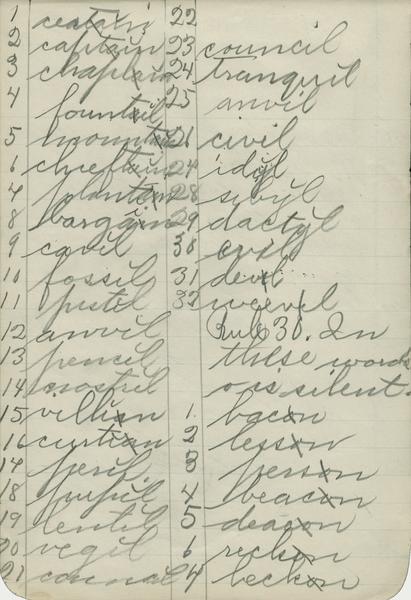 1 ceatain
2 captain
3 chaplain
4
fountil
5 mountain
6 chieftain
7 plantain
8 bargain
9 cavil
10 fossil
11 pistil
12 anvil
13 pencil
14 nostril
15 villian
16 curtian
17 peril
18 pupil
19 lentil
20 vegil
21 connail
22
23 council
24 tranquil
25 anvil
26 civil
27 idyl
28 sibyl
29 dactyl
30 evil
31 devil
32 weevil
Rule 31. In
these words
o is silent.
1. bacon
2 lesson
3 person
4 beacon
5 deacon
6 reckon
7 beckon